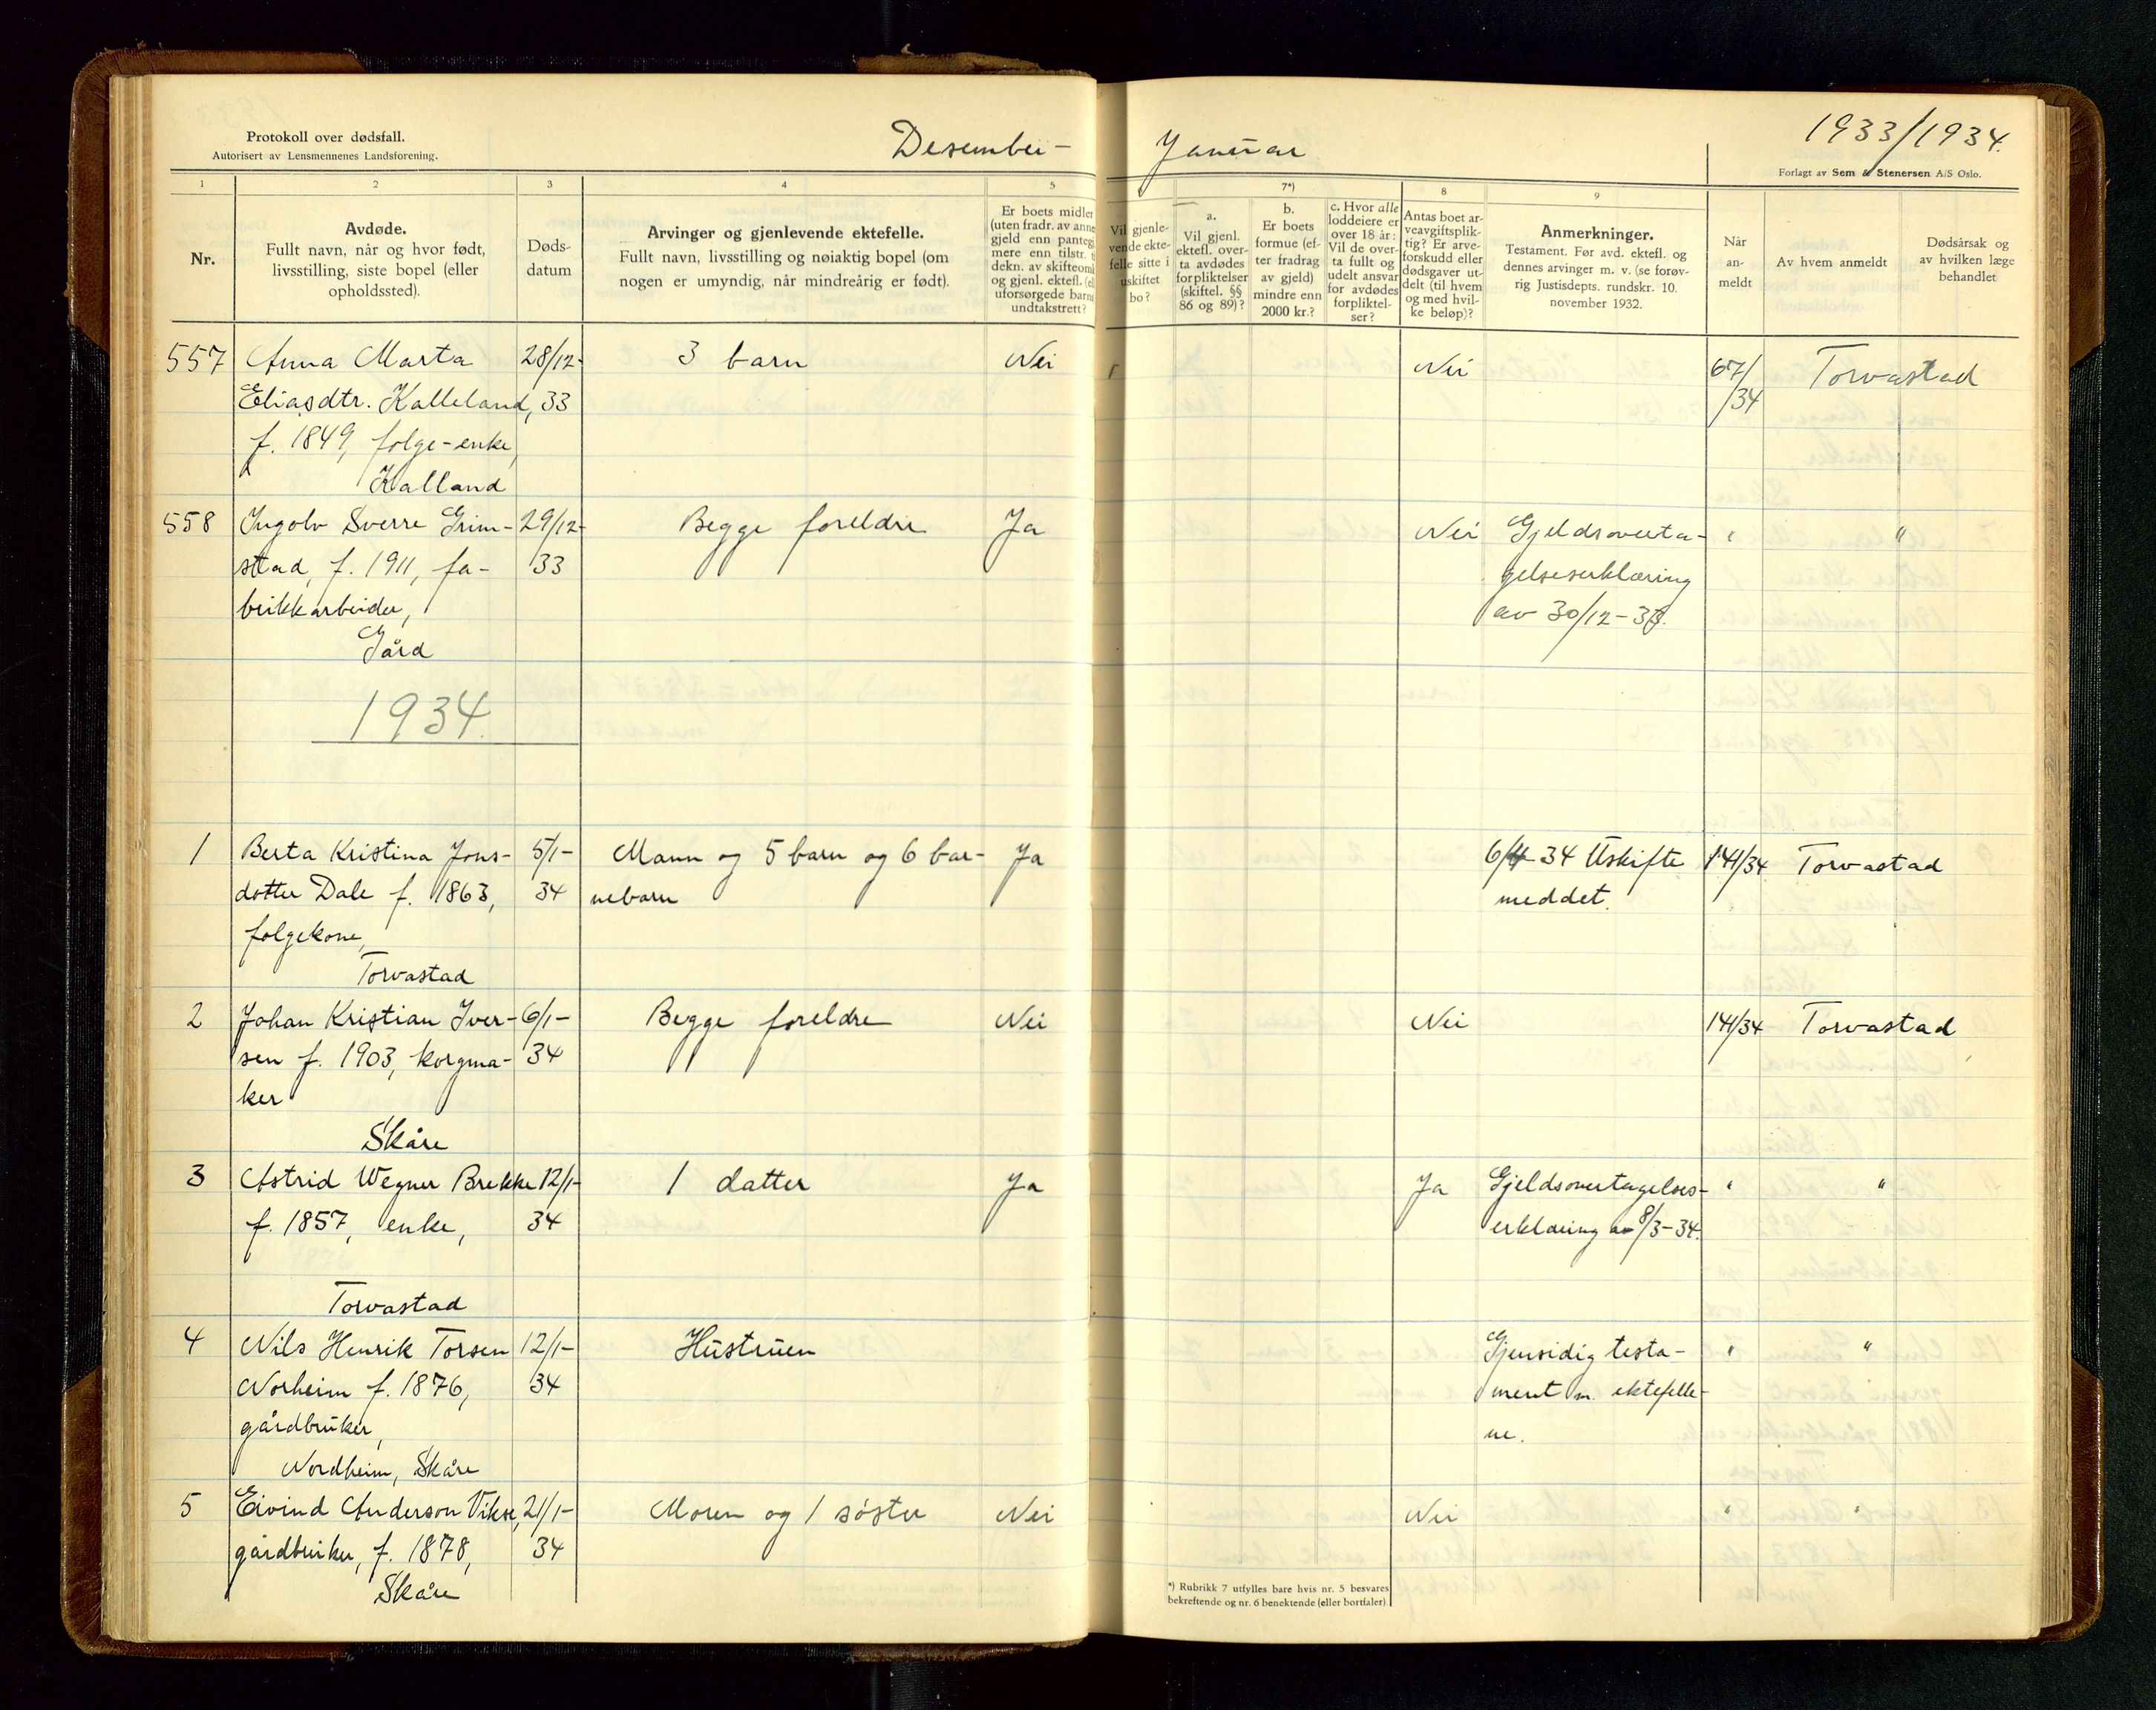 Protokoll over dødsfall.
Autorisert av Lensmennenes Landsforening.
Desember –
Januar
1933/1934.
Forlagt av Sem & Stenersen A/S Oslo.
1
2
3
4
5
7*)
8
9
Nr.
Avdøde.
Fullt navn, når og hvor født,
livsstilling, siste bopel (eller
opholdssted).
Døds-
datum
Arvinger og gjenlevende ektefelle.
Fullt navn, livsstilling og nøiaktig bopel (om
nogen er umyndig, når mindreårig er født).
Er boets midler
(uten fradr. av anne
gjeld enn pantegj
mere enn tilstr. t
dekn. av skifteomk
og gjenl. ektefl. (el
uforsørgede barns
undtaksrett?
Vil gjenle-
vende ekte-
felle sitte i
uskiftet
bo?
a.
Vil gjenl.
ektefl. over-
ta avdødes
forpliktelser
(skiftel. §§
86 og 89)?
b.
Er boets
formue (ef-
ter fradrag
av gjeld)
mindre enn
2000 kr.?
c. Hvor alle
loddeiere er
over 18 år:
Vil de over-
ta fullt og
udelt ansvar
for avdødes
forpliktel-
ser?
Antas boet ar-
veavgiftsplik-
tig? Er arve-
forskudd eller
dødsgaver ut-
delt (til hvem
og med hvil-
ke beløp)?
Anmerkninger.
Testament. Før avd. ektefl. og
dennes arvinger m. v. (se forøv-
rig Justisdepts. rundskr. 10.
november 1932.
Når
an-
meldt
Av hvem anmeldt
Dødsårsak og
av hvilken læge
behandlet
557 Anna Marta 28/12- 3 barn Nei Nei 6/1/ Torvastad
Eliasdtr. Kalleland, 33 /34
f. 1849, folge-enke,
Kalland
558 Ingolv Sverre Grim- 29/12- Begge foreldre Ja Nei Gjeldsoverta- " "
stad, f. 1911, fa- 33 gelseserklæring
brikkarbeider, av 30/12-33.
Gård
1934.
1 Berta Kristina Jons- 5/1- Mann og 5 barn og 6 bar- Ja 6/4-34 Uskifte 14/1/34 Torvastad
dotter Dale f. 1863, 34 nebarn meddet.
folgekone,
Torvastad
2 Johan Kristian Iver- 6/1- Begge foreldre Nei Nei 14/1/34 Torvastad
sen f. 1903, korgma- 34
ker
Skåre
3 Astrid Wegner Brekke 12/1- 1 datter Ja Ja Gjeldsovertagelses- " "
f. 1857, enke, 34 erklæring av 8/3-34.
Torvastad
4 Nils Henrik Torsen 12/1- Hustruen Gjensidig testa- " "
Norheim f. 1876, 34 ment m. ektefelle-
gårdbruker, ne.
Nordheim, Skåre
5 Eivind Anderson Vikse, 21/1- Moren og 1 søster Nei Nei " "
gårdbruker, f. 1878, 34
Skåre
*) Rubrikk 7 utfylles bare hvis nr. 5 besvares
bekreftende og nr. 6 benektende (eller bortfaler).